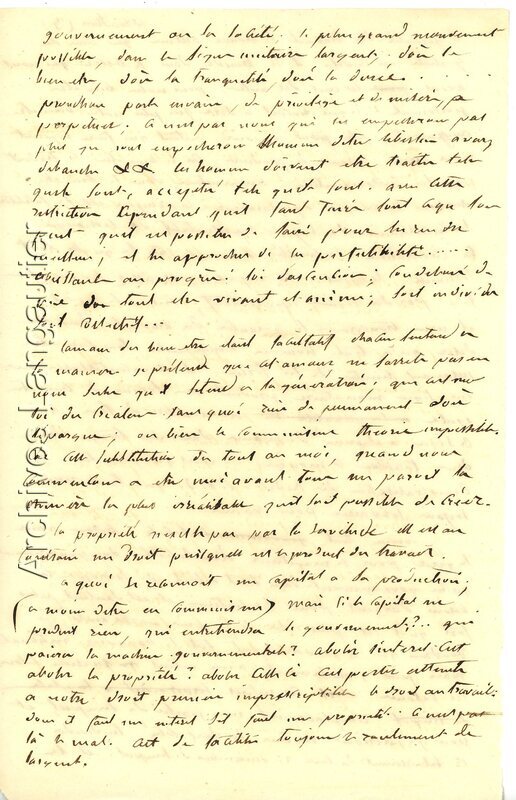 gouvernement ou la société. le plus grand mouvement
possible, dans le signe monétaire l'argent; d'où le
bien être, d'où la tranquilité, d'où la durée. . . . .
proudhon parle encore, de privilège et de misère, se
perpetuer. Ce n'est pas nous qui les empecherons pas
plus que nous empecherons l'homme d'etre libertin avare
debauché && les hommes doivent etre traités tels
quels sont, acceptés tels quels sont. avec cette
restriction cependant quil faut faire tout ce que l'on
peut quil est possible de faire pour les rendre
meilleurs, et les approcher de la perfectibilité......
obeissant au progrès! loi d'ascension; de
vie de tout etre vivant et animé; soit individu
soit collectif...
l'amour du bien etre étant facultatif chacun l'entend a
sa manière. je prétends que cet amour ne s'arrete pas en
nous qu'il s'étend a la génération; que c'est une
loi du Createur sans quoi rien de permanent
ou bien le communisme théorie impossible.
cette substitution du tout au moi, quand nous
commencons a etre moi avant tout me parait la
chimère la plus irréalisable quil soit possible de créér.
la propriété n'existe pas par la servitude elle est au
contraire un droit puisqu'elle est le produit du travail.
a quoi se reconnoit un capital a la production;
(a moins d'etre en communisme) mais si le capital ne
produit rien, qui entretiendra le gouvernement?.. qui
paiera la machine gouvernementale? abolir l'interet c'est
abolir la propriété? abolir celle là c'est porter atteinte
a notre droit premier imprescriptible le droit au travail.
donc il faut un interet s'il faut une propriété. Ce n'est pas
là le mal. c'est de faciliter toujours le roulement de
l'argent.
Archives Langaudier